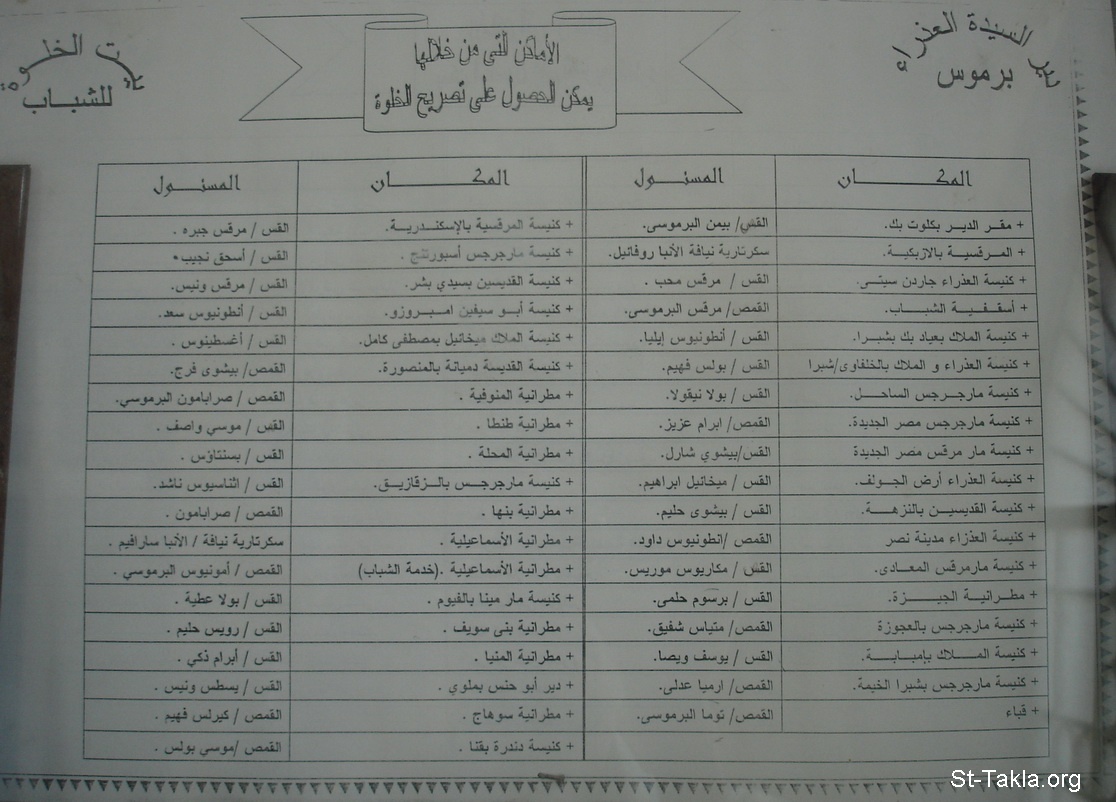 دير السيدة العذراء
برموس
الأماكن التى من خلالها
يمكن الحصول على تصريح الخلوة
بيت الخلوة
للشباب
المكـــان المسئـــول
+ مقـر الديـر بكلوت بك. القس/ بيمن البرموسى.
+ المرقسية بالازبكية. سكرتارية نيافة الأنبا روفائيل.
+ كنيسة العذراء جاردن سيتى. القس / مرقس محب .
+ أسقـفـيـة الشبـاب. القمص/ مرقس البرموسى.
+ كنيسة الملاك بعياد بك بشبـرا. القس / أنطونيوس إيليا.
+ كنيسة العذراء و الملاك بالخلفاوى/شبرا القس / بولس فهيم.
+ كنيسة مارجـرجس الساحـل. القس / بولا نيقولا.
+ كنيسة مارجرجس مصر الجديدة. القمص/ ابرام عزيز.
+ كنيسة مار مرقس مصر الجديدة القس/بيشوي شارل.
+ كنيسة العذراء أرض الجـولف. القس / ميخائيل ابراهيم.
+ كنيسة القديسيـن بالنزهـة. القس / بيشوى حليم.
+ كنيسة العذراء مدينة نصر القمص /انطونيوس داود.
+ كنيسة مارمرقس المعـادى. القس / مكاريوس موريس.
+ مطـرانيـة الجيـزة. القس / برسوم حلمى.
+ كنيسة مارجرجس بالعجوزة القمص/ متياس شفيق.
+ كنيسة المـلاك بإمبابـة. القس / يوسف ويصا.
+ كنيسة مارجرجس بشبرا الخيمة. القمص/ ارميا عدلى.
+ قباء القمص/ توما البرموسى.
المكـــان المسئـــول
+ كنيسة المرقسية بالإسكندريـة. القس / مرقس جبره .
+ كنيسة مارجرجس أسبورتنج . القس / أسحق نجيب.
+ كنيسة القديسين بسيدي بشر. القس / مرقس ونيس.
+ كنيسة أبـو سيفين امبـروزو. القس / أنطونيوس سعد.
+ كنيسة الملاك ميخائيل بمصطفى كامل. القس / أغسطينوس .
+ كنيسة القديسة دميانة بالمنصورة. القمص/ بيشوى فرج.
+ مطرانية المنوفية . القمص / صرابامون البرموسي.
+ مطرانية طنطا . القس / موسي واصف .
+ مطرانية المحلة . القس / بسنتاؤس .
+ كنيسة مارجرجـس بالـزقازيـق. القس / اثناسيوس ناشد.
+ مطرانية بنها . القمص / صرابامون .
+ مطرانية الأسماعيلية . سكرتارية نيافة / الأنبا سارافيم .
+ مطرانية الأسماعيلية .(خدمة الشباب) القمص / أمونيوس البرموسي .
+ كنيسة مار مينا بالفيوم . القس / بولا عطية .
+ مطرانية بنى سويف . القس / رويس حليم .
+ مطرانية المنيا . القس / أبرام ذكي .
+ دير أبو حنس بملوي . القس / يسطس ونيس .
+ مطرانية سوهاج . القمص / كيرلس فهيم .
+ كنيسة دندرة بقنا . القمص /موسي بولس .
St-Takla.org